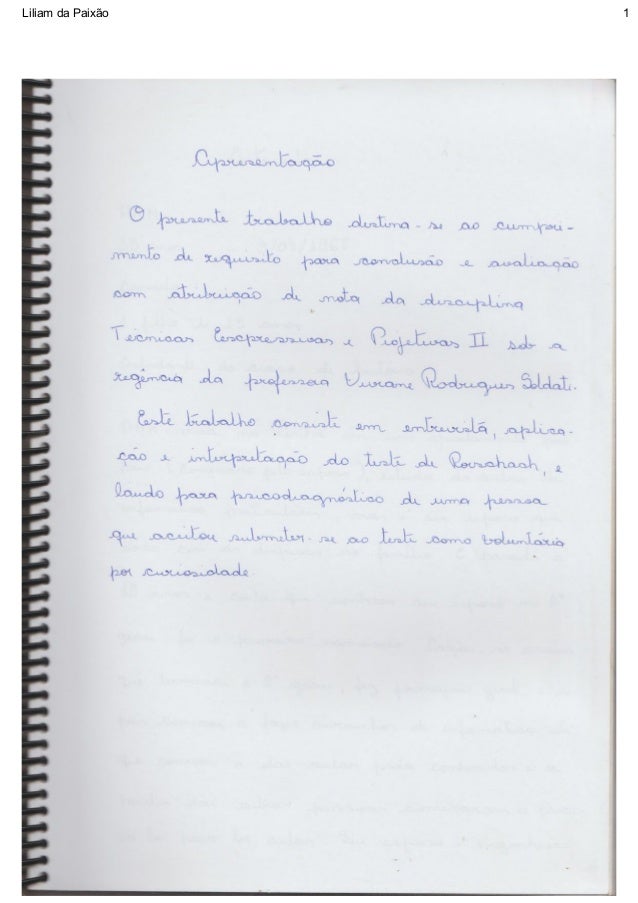 Liliam da Paixão 1
Apresentação
O presente trabalho destina-se ao cumpri-
mento de requisito para conclusão e avaliação
com atribuição de nota da disciplina
Técnicas Eescpressivas e Projetivas II sob a
regência da professora Viviane Rodrigues Soldati.
Este trabalho consiste em entrevista, aplica-
ção e interpretação do teste de Rorschach, e
laudo para psicodiagnóstico de uma pessoa
que aceitou submeter-se ao teste como voluntário
por curiosidade.